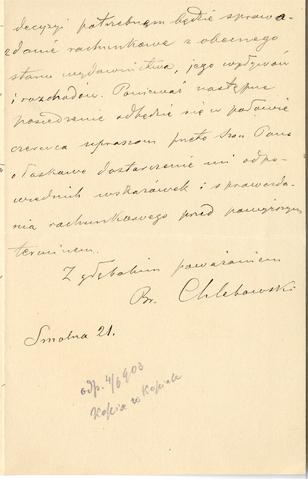 decyzyi potrzebnem będzie sprawo-
zdanie rachunkowe z obecnego
stanu wydawnictwa, jego wpływów
i rozchodów. Ponieważ następne
posiedzenie odbędzie się w połowie
czerwca upraszam przeto Szan Pana
o łaskawe dostarczenie mi odpo-
wiednich wskazówek i sprawozda-
nia rachunkowego przed powyższym
terminem.
Z głębokim poważaniem
Br. Chlebowski
Smolna 21.
odp. 4/6 903
Kopia w Kopiale